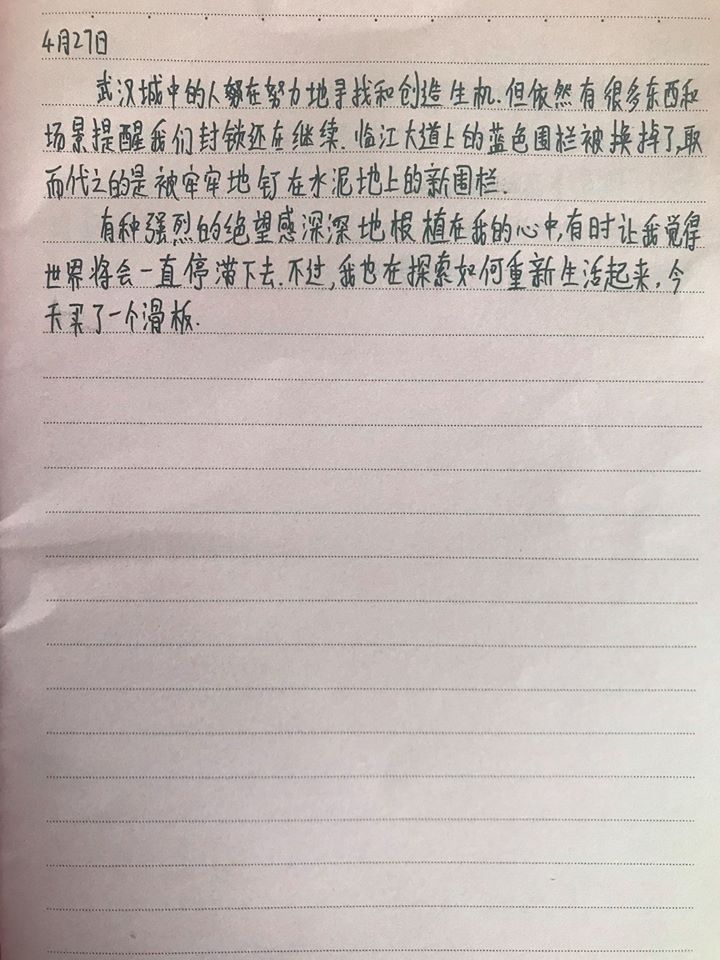 4月27日
武汉城中的人都在努力地寻找和创造生机.但依然有很多东西和
场景提醒我们封锁还在继续.临江大道上的蓝色围栏被换掉了,取
而代之的是被牢牢地钉在水泥地上的新围栏.
有种强烈的绝望感深深地根植在我的心中,有时让我觉得
世界将会一直停滞下去.不过,我也在探索如何重新生活起来,今
天买了一个滑板.